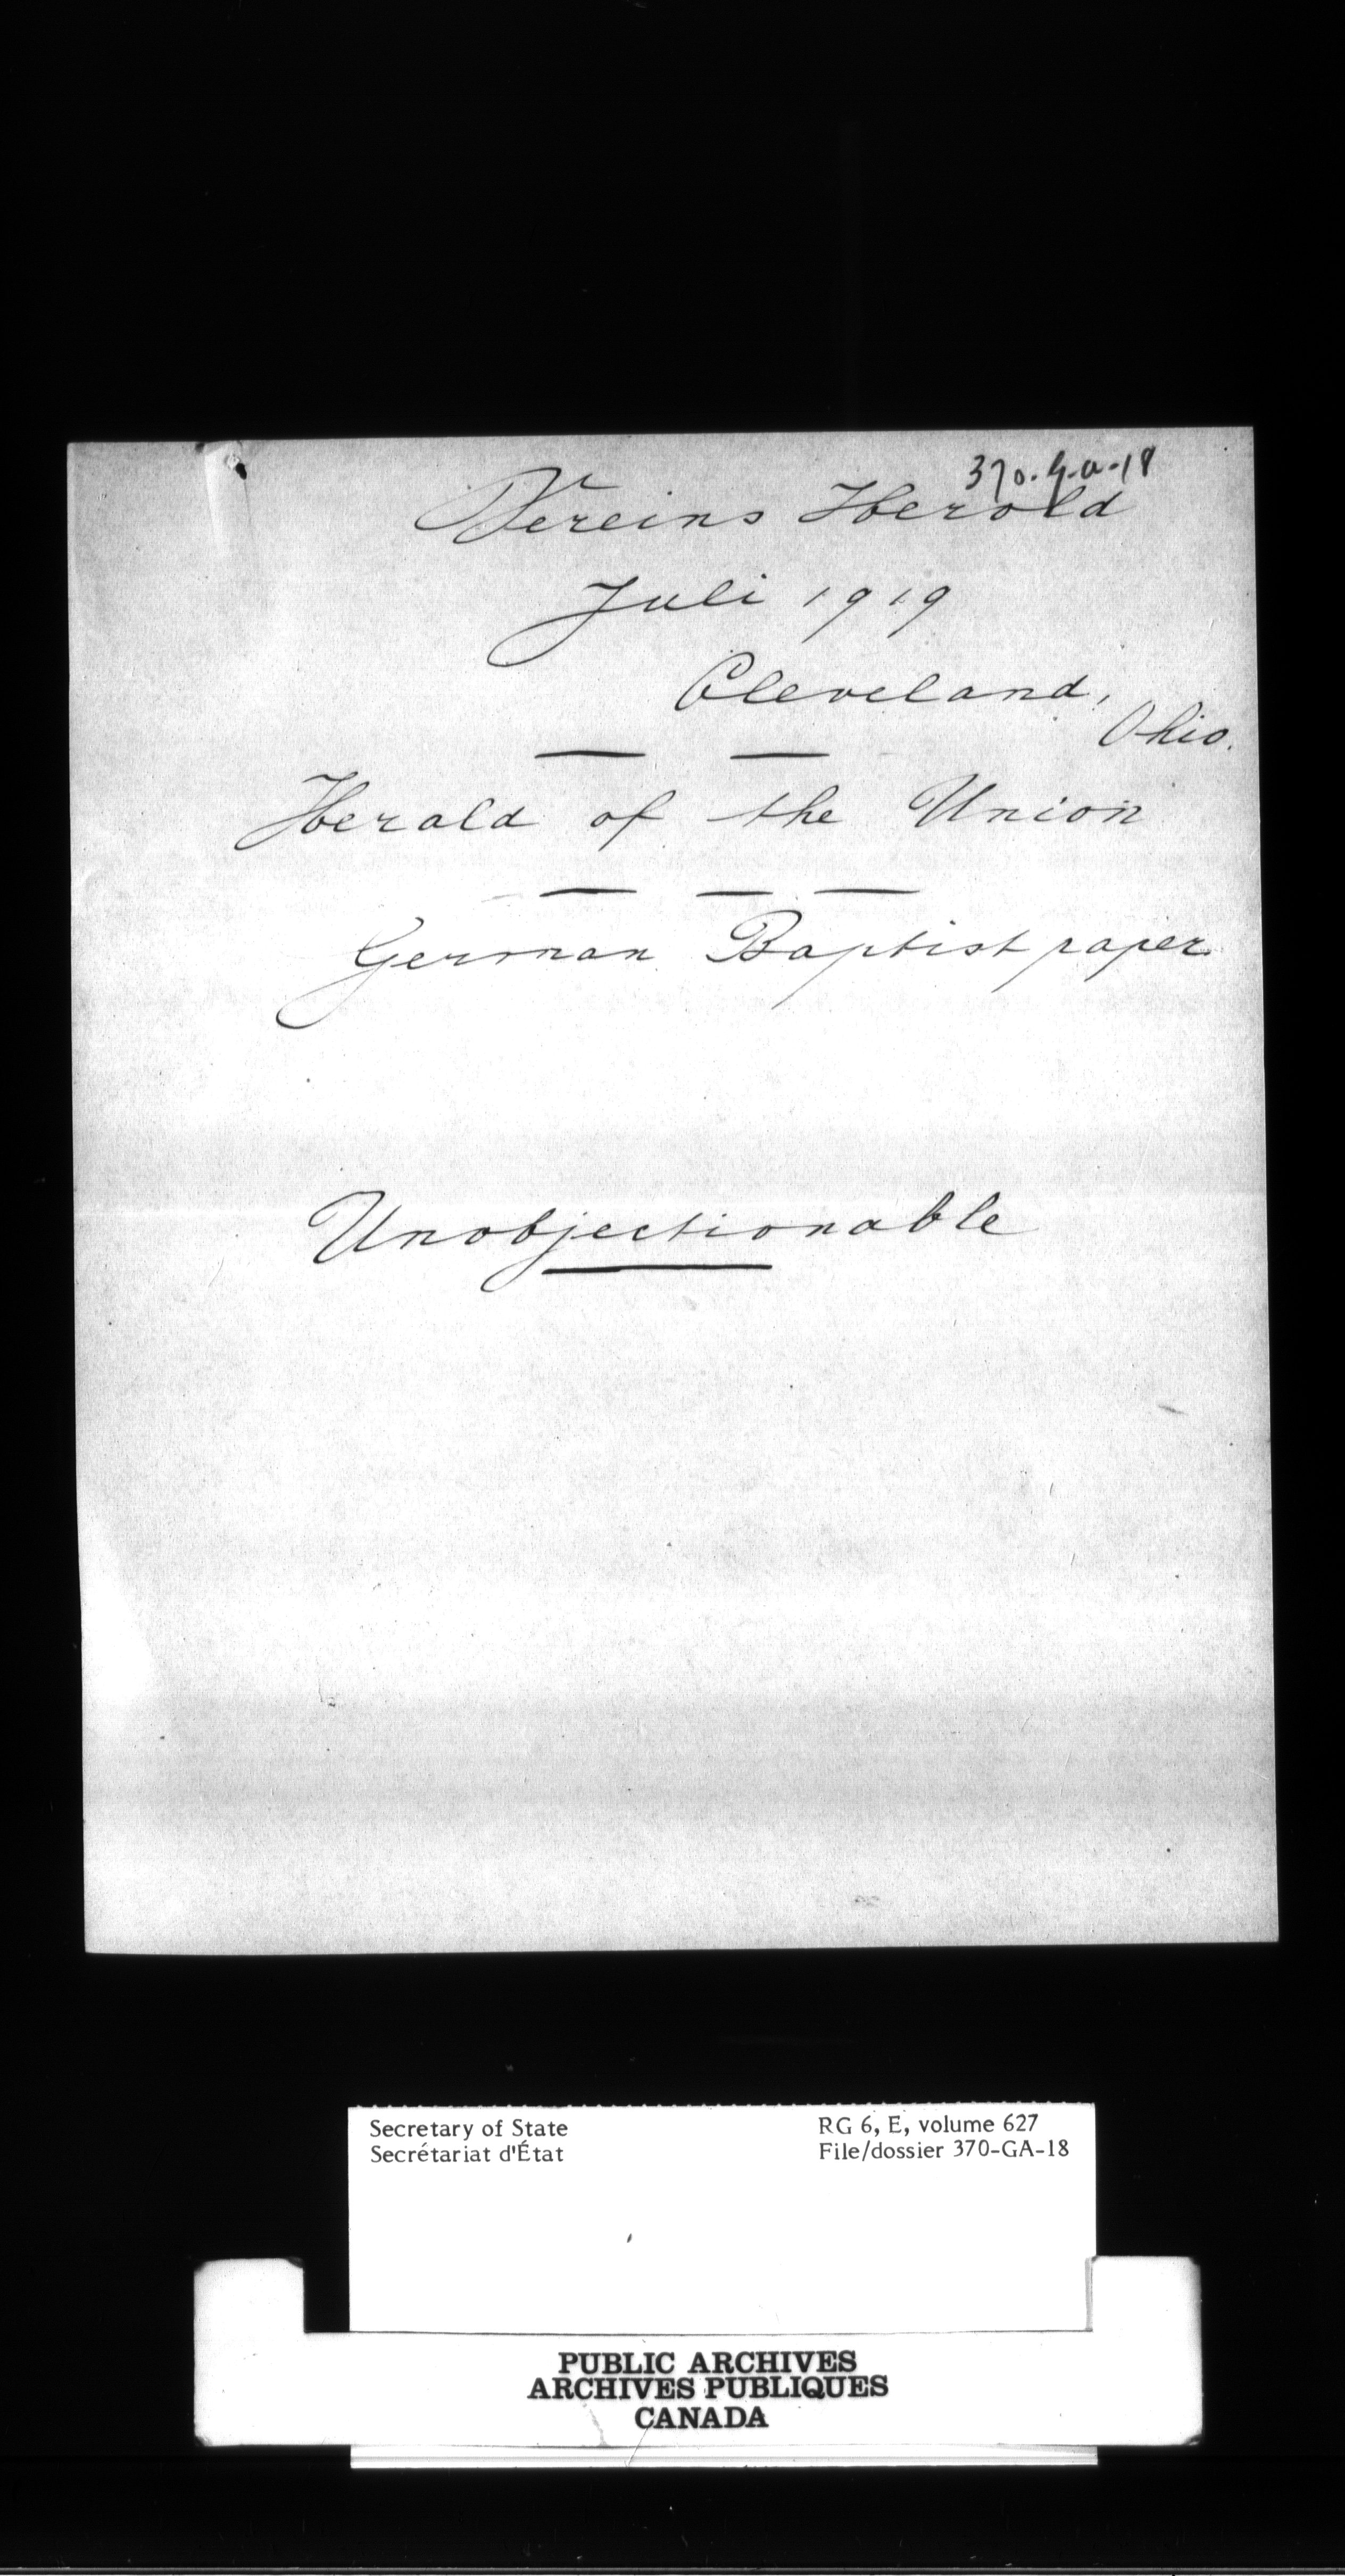 370.G.a.18
Vereins Herold
Juli 1919
Cleveland,
Ohio.
— —
Herald of the Union
— — —
German Baptist paper
Unobjectionable
Secretary of State
Secrétariat d'État
RG 6, E, volume 627
File/dossier 370-GA-18
PUBLIC ARCHIVES
ARCHIVES PUBLIQUES
CANADA